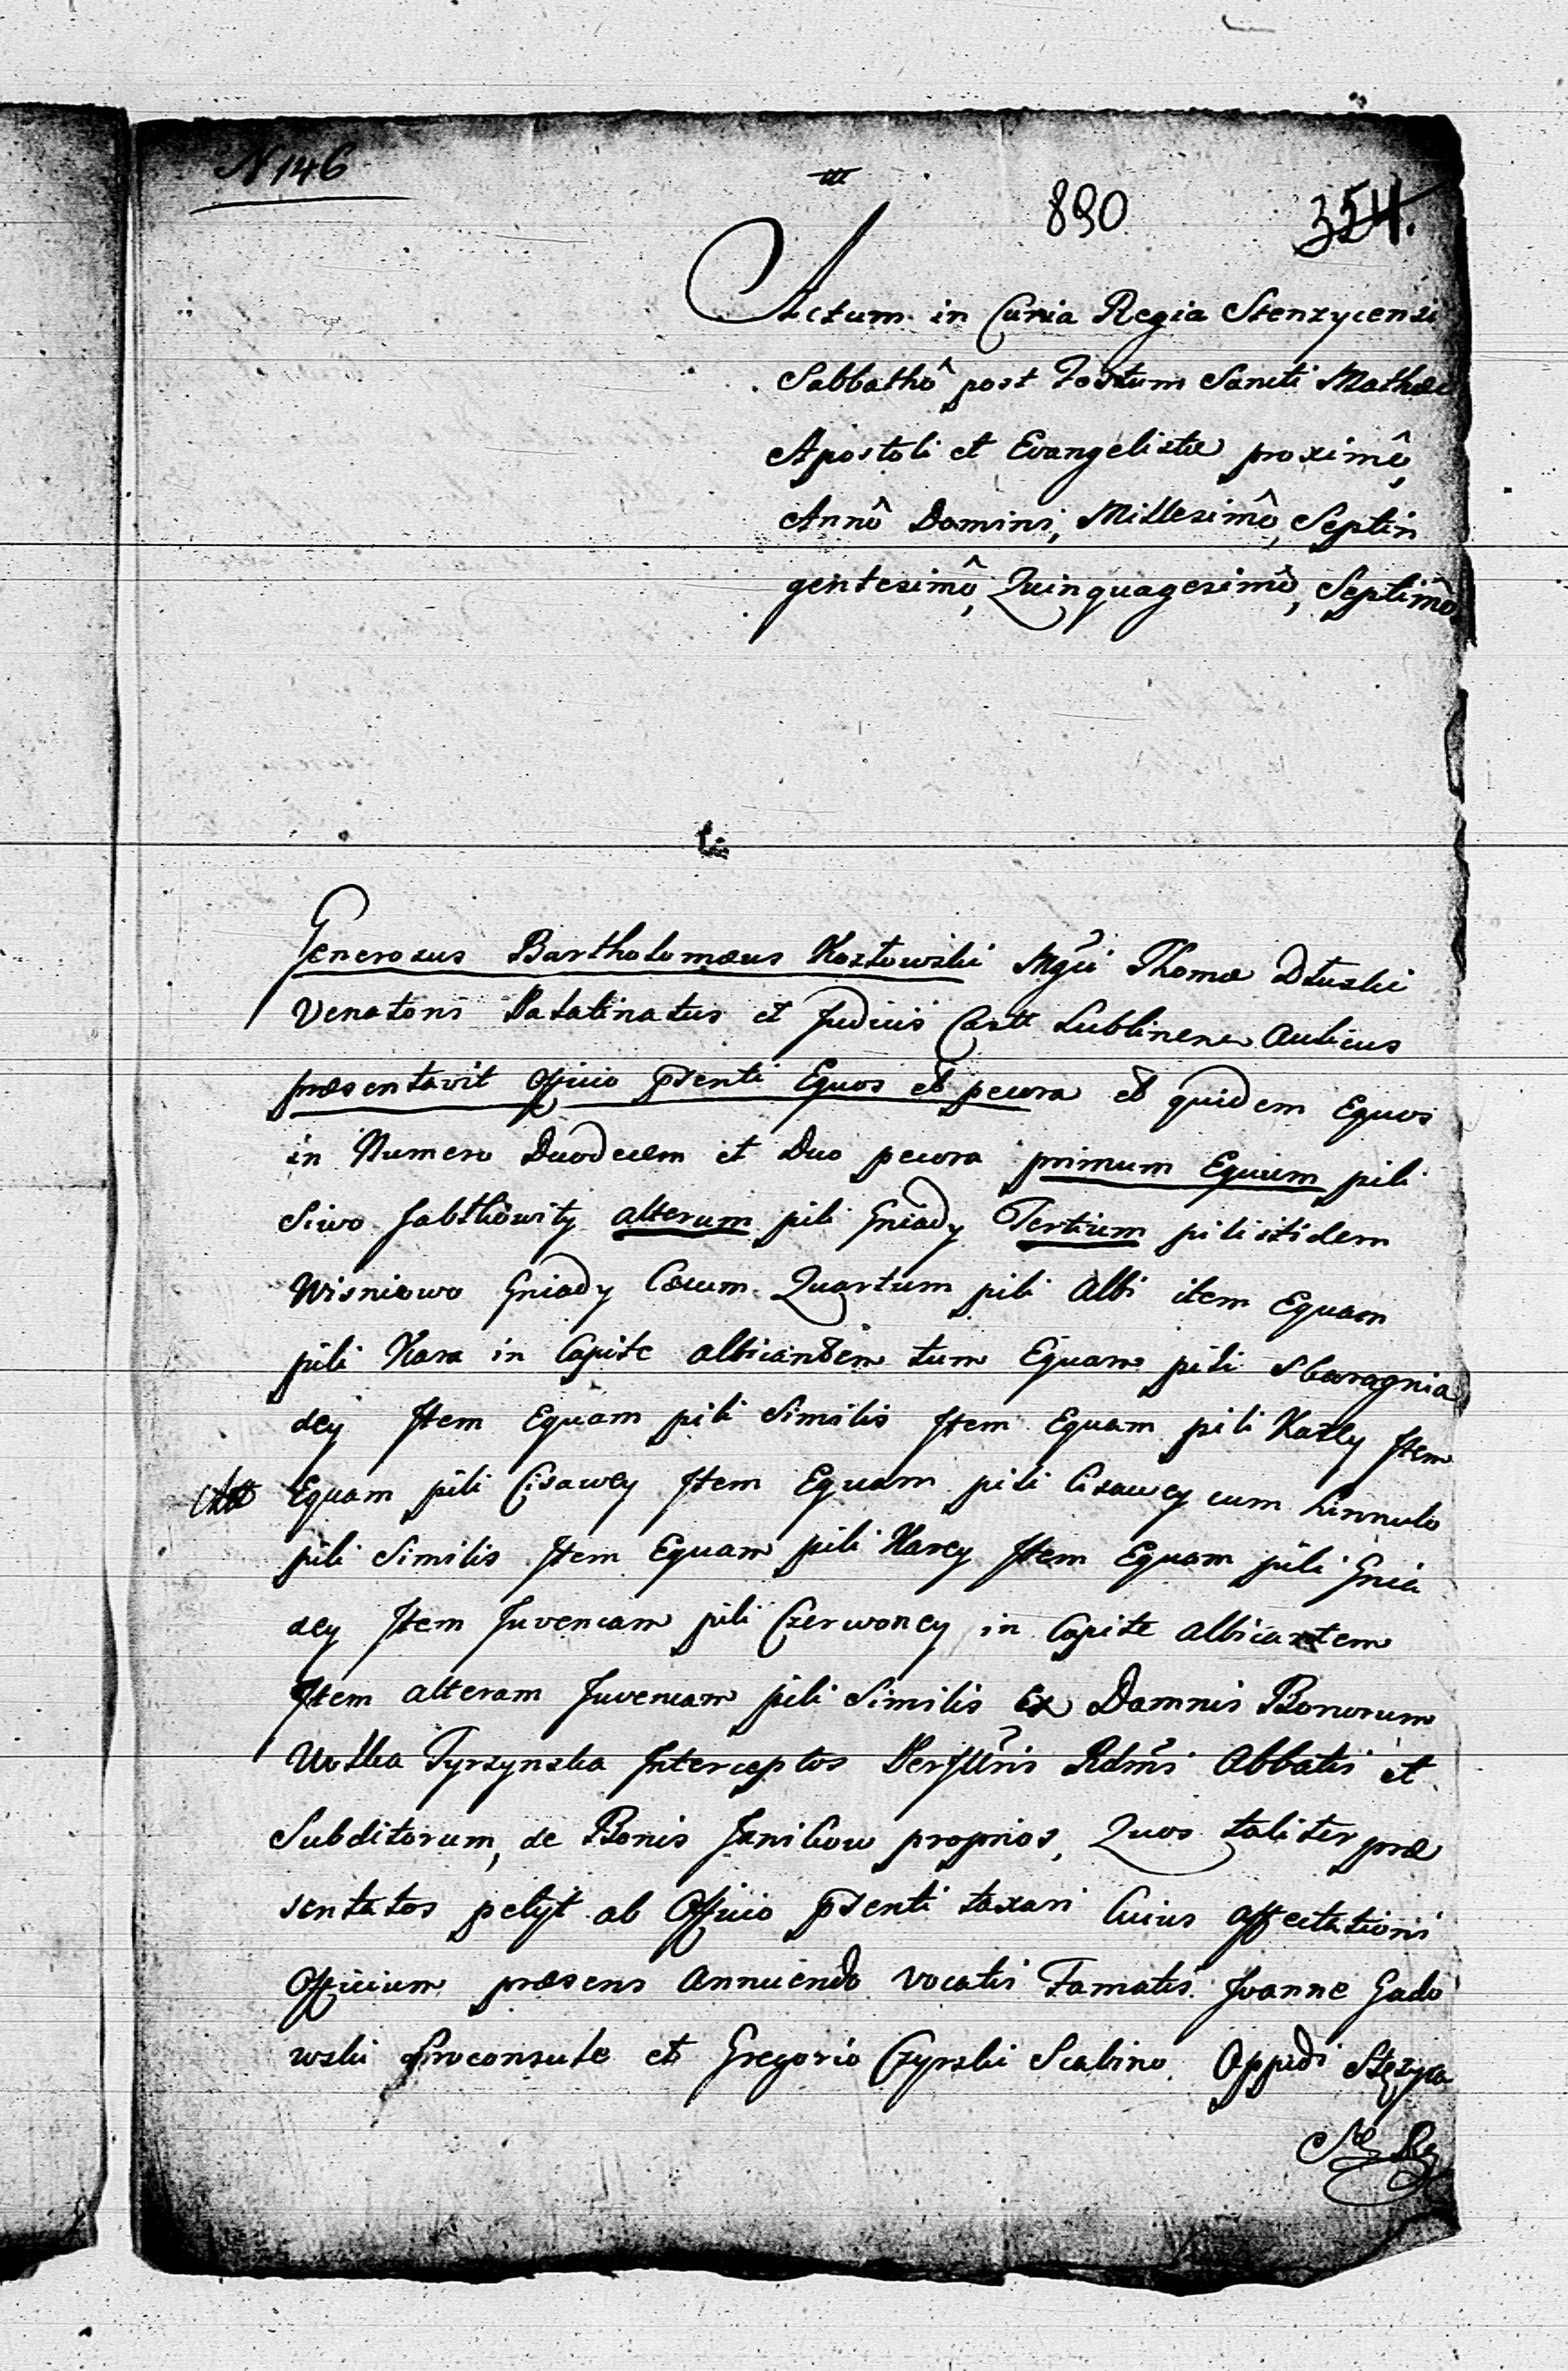 N 146
890 354.
Actum in Curia Regia Stenzycensi
Sabbathô post Festum Sancti Mathæi
Apostoli et Evangelistæ proximô,
Annô Domini, Millesimô, Septin
gentesimô, Quinquagesimô, Septimô
Generosus Bartholomæus Kozłowski Mgci Thomæ Dłuski
Venatoris Palatinatus et Judicis Castr Lublinens Aulicus
præsentavit Officio pšenti Equos et pecora et quidem Equos
in Numero Duodecem et Duo pecora primum Equum pili
Siwo Jabłkowity alterum pili Gniady Tertium pili itidem
Wisniowo Gniady Cæcum Quartum pili Albi item Equam
pili Kara in Capite albicantem tum Equam pili Skarognia
dey Item Equam pili Similis Item Equam pili Karey Item
Equam pili Cisawey Item Equam pili Cisawey cum hinnulo
pili Similis Item Equam pili Karey Item Equam pili Gnia
dey Item Juvencam pili Czerwoney in Capite albicantem
Item alteram Juvencam pili Similis Ex Damnis Bonorum
Wolka Tyrzynska Interceptos PerIllris Rdmi Abbatis et
Subditorum, de Bonis Janikow proprios, Quos taliter præ
sentatos petyt ab Officio pšenti taxari Cuius affectationi
Officium præsens Annuendo vocatis Famatis Joanne Gado
wski Proconsule et Gregorio Czyrski Scabino Oppidi Stęzyca